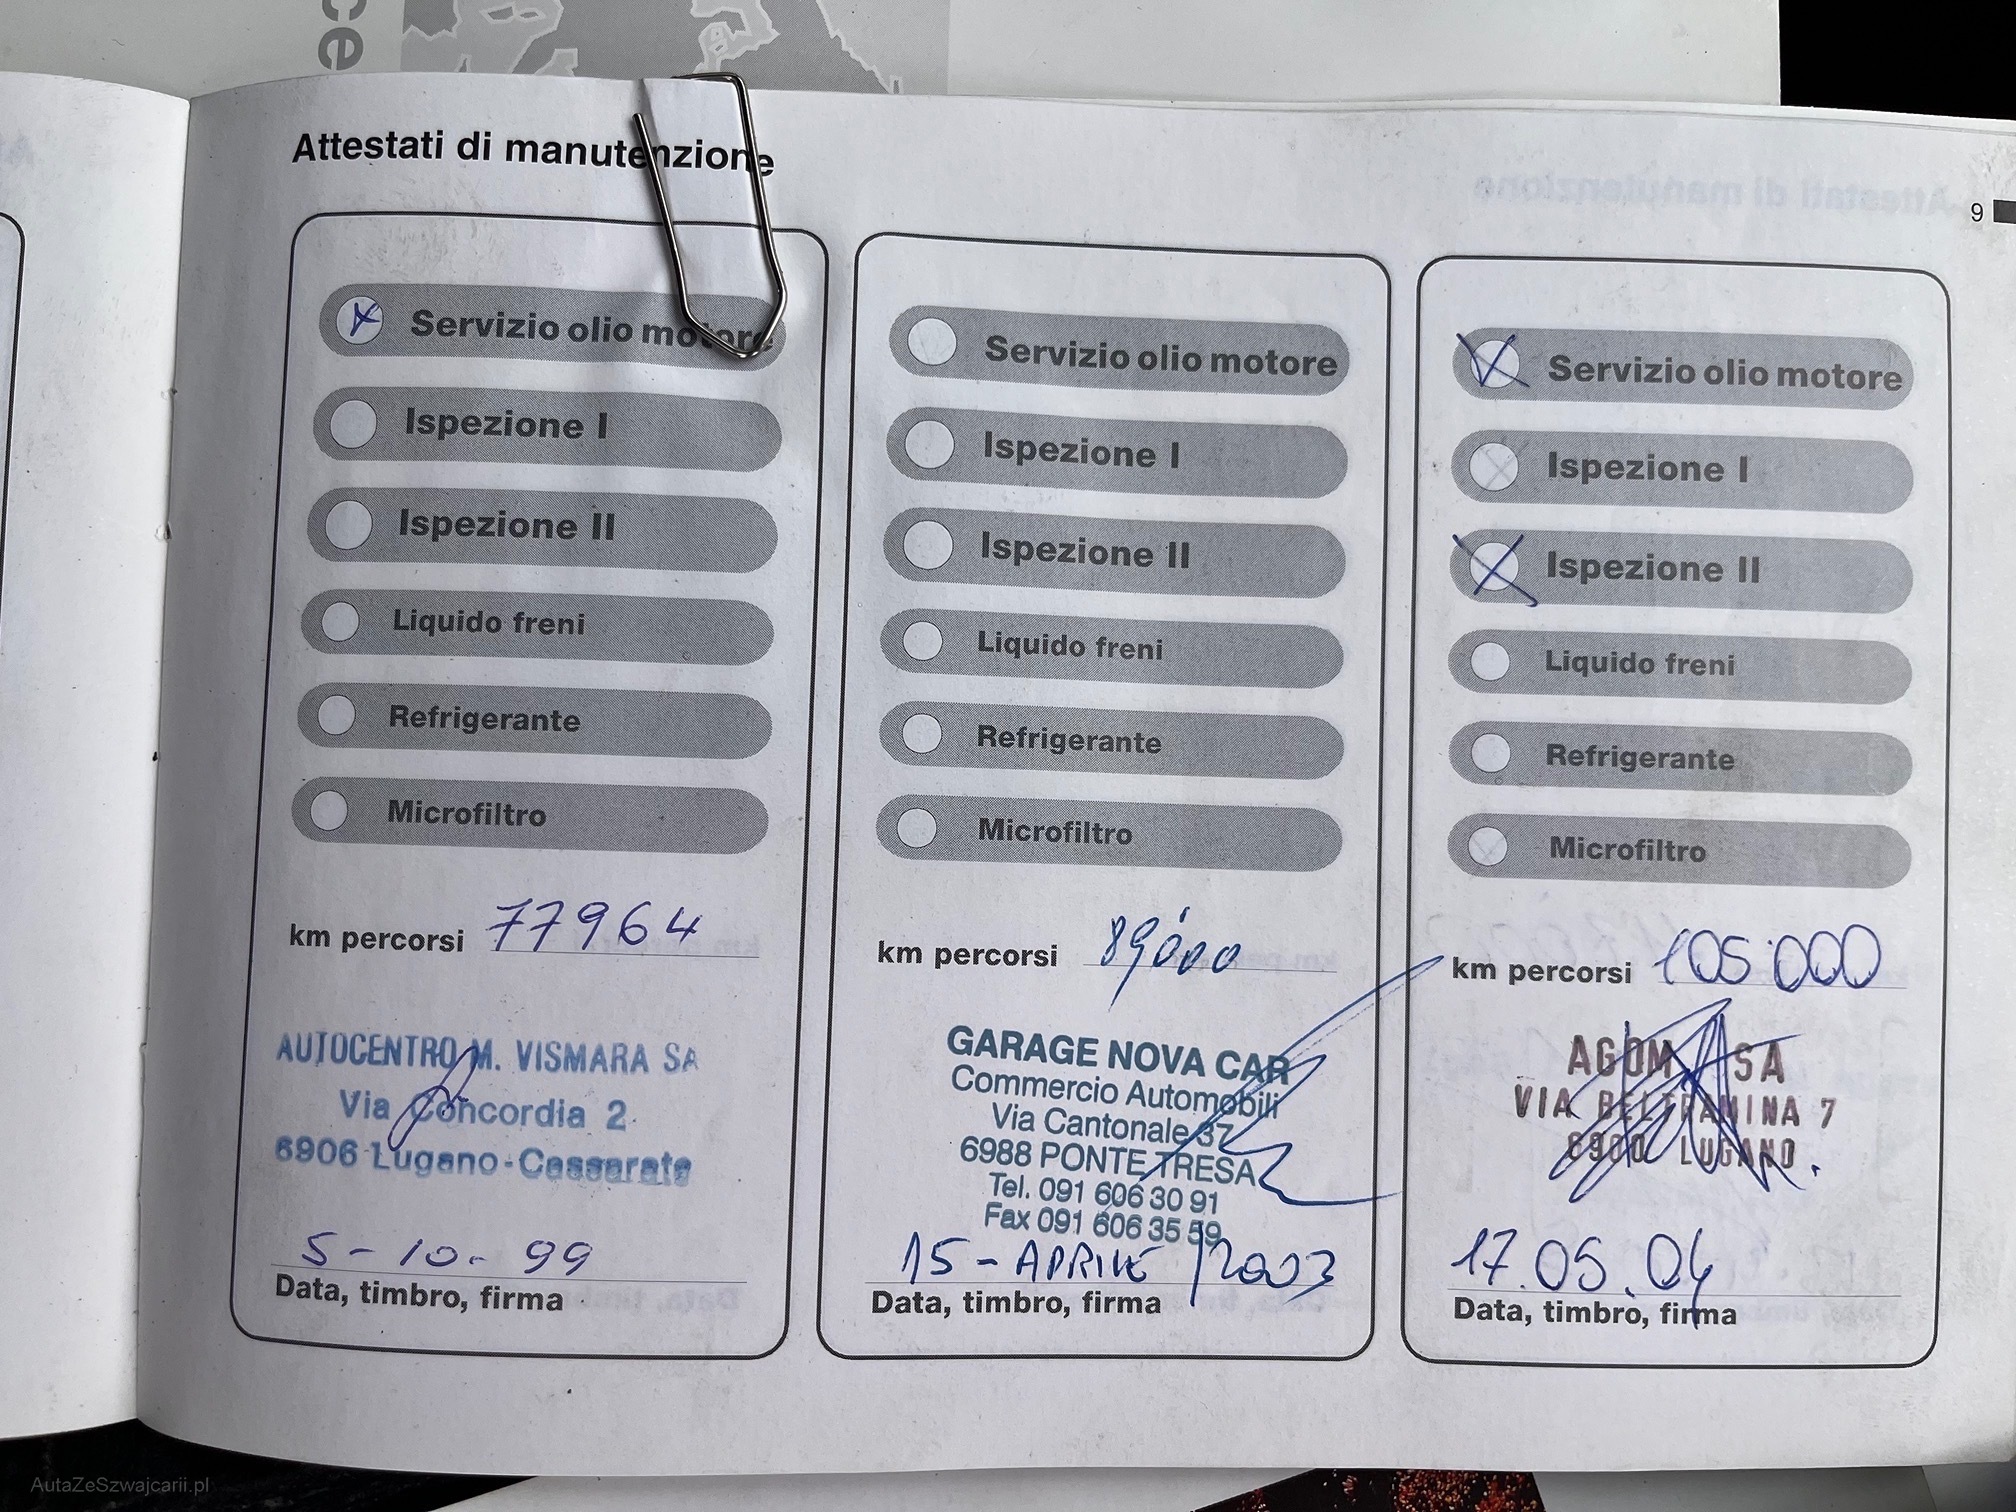 ce
Attestati di manutenzione
9
Servizio olio motore
Ispezione I
Ispezione II
Liquido freni
Refrigerante
Microfiltro
km percorsi 77964
AUTOCENTRO M. VISMARA SA
Via Concordia 2
6906 Lugano-Cassarate
5-10-99
Data, timbro, firma
Servizio olio motore
Ispezione I
Ispezione II
Liquido freni
Refrigerante
Microfiltro
km percorsi 89'000
GARAGE NOVA CAR
Commercio Automobili
Via Cantonale 37
6988 PONTE TRESA
Tel. 091 606 30 91
Fax 091 606 35 59
15 - APRILE /2003
Data, timbro, firma
Servizio olio motore
Ispezione I
Ispezione II
Liquido freni
Refrigerante
Microfiltro
km percorsi 105.000
AGOM SA
VIA BELTRAMINA 7
6900 LUGANO.
17.05.04
Data, timbro, firma
AutaZeSzwajcarii.pl